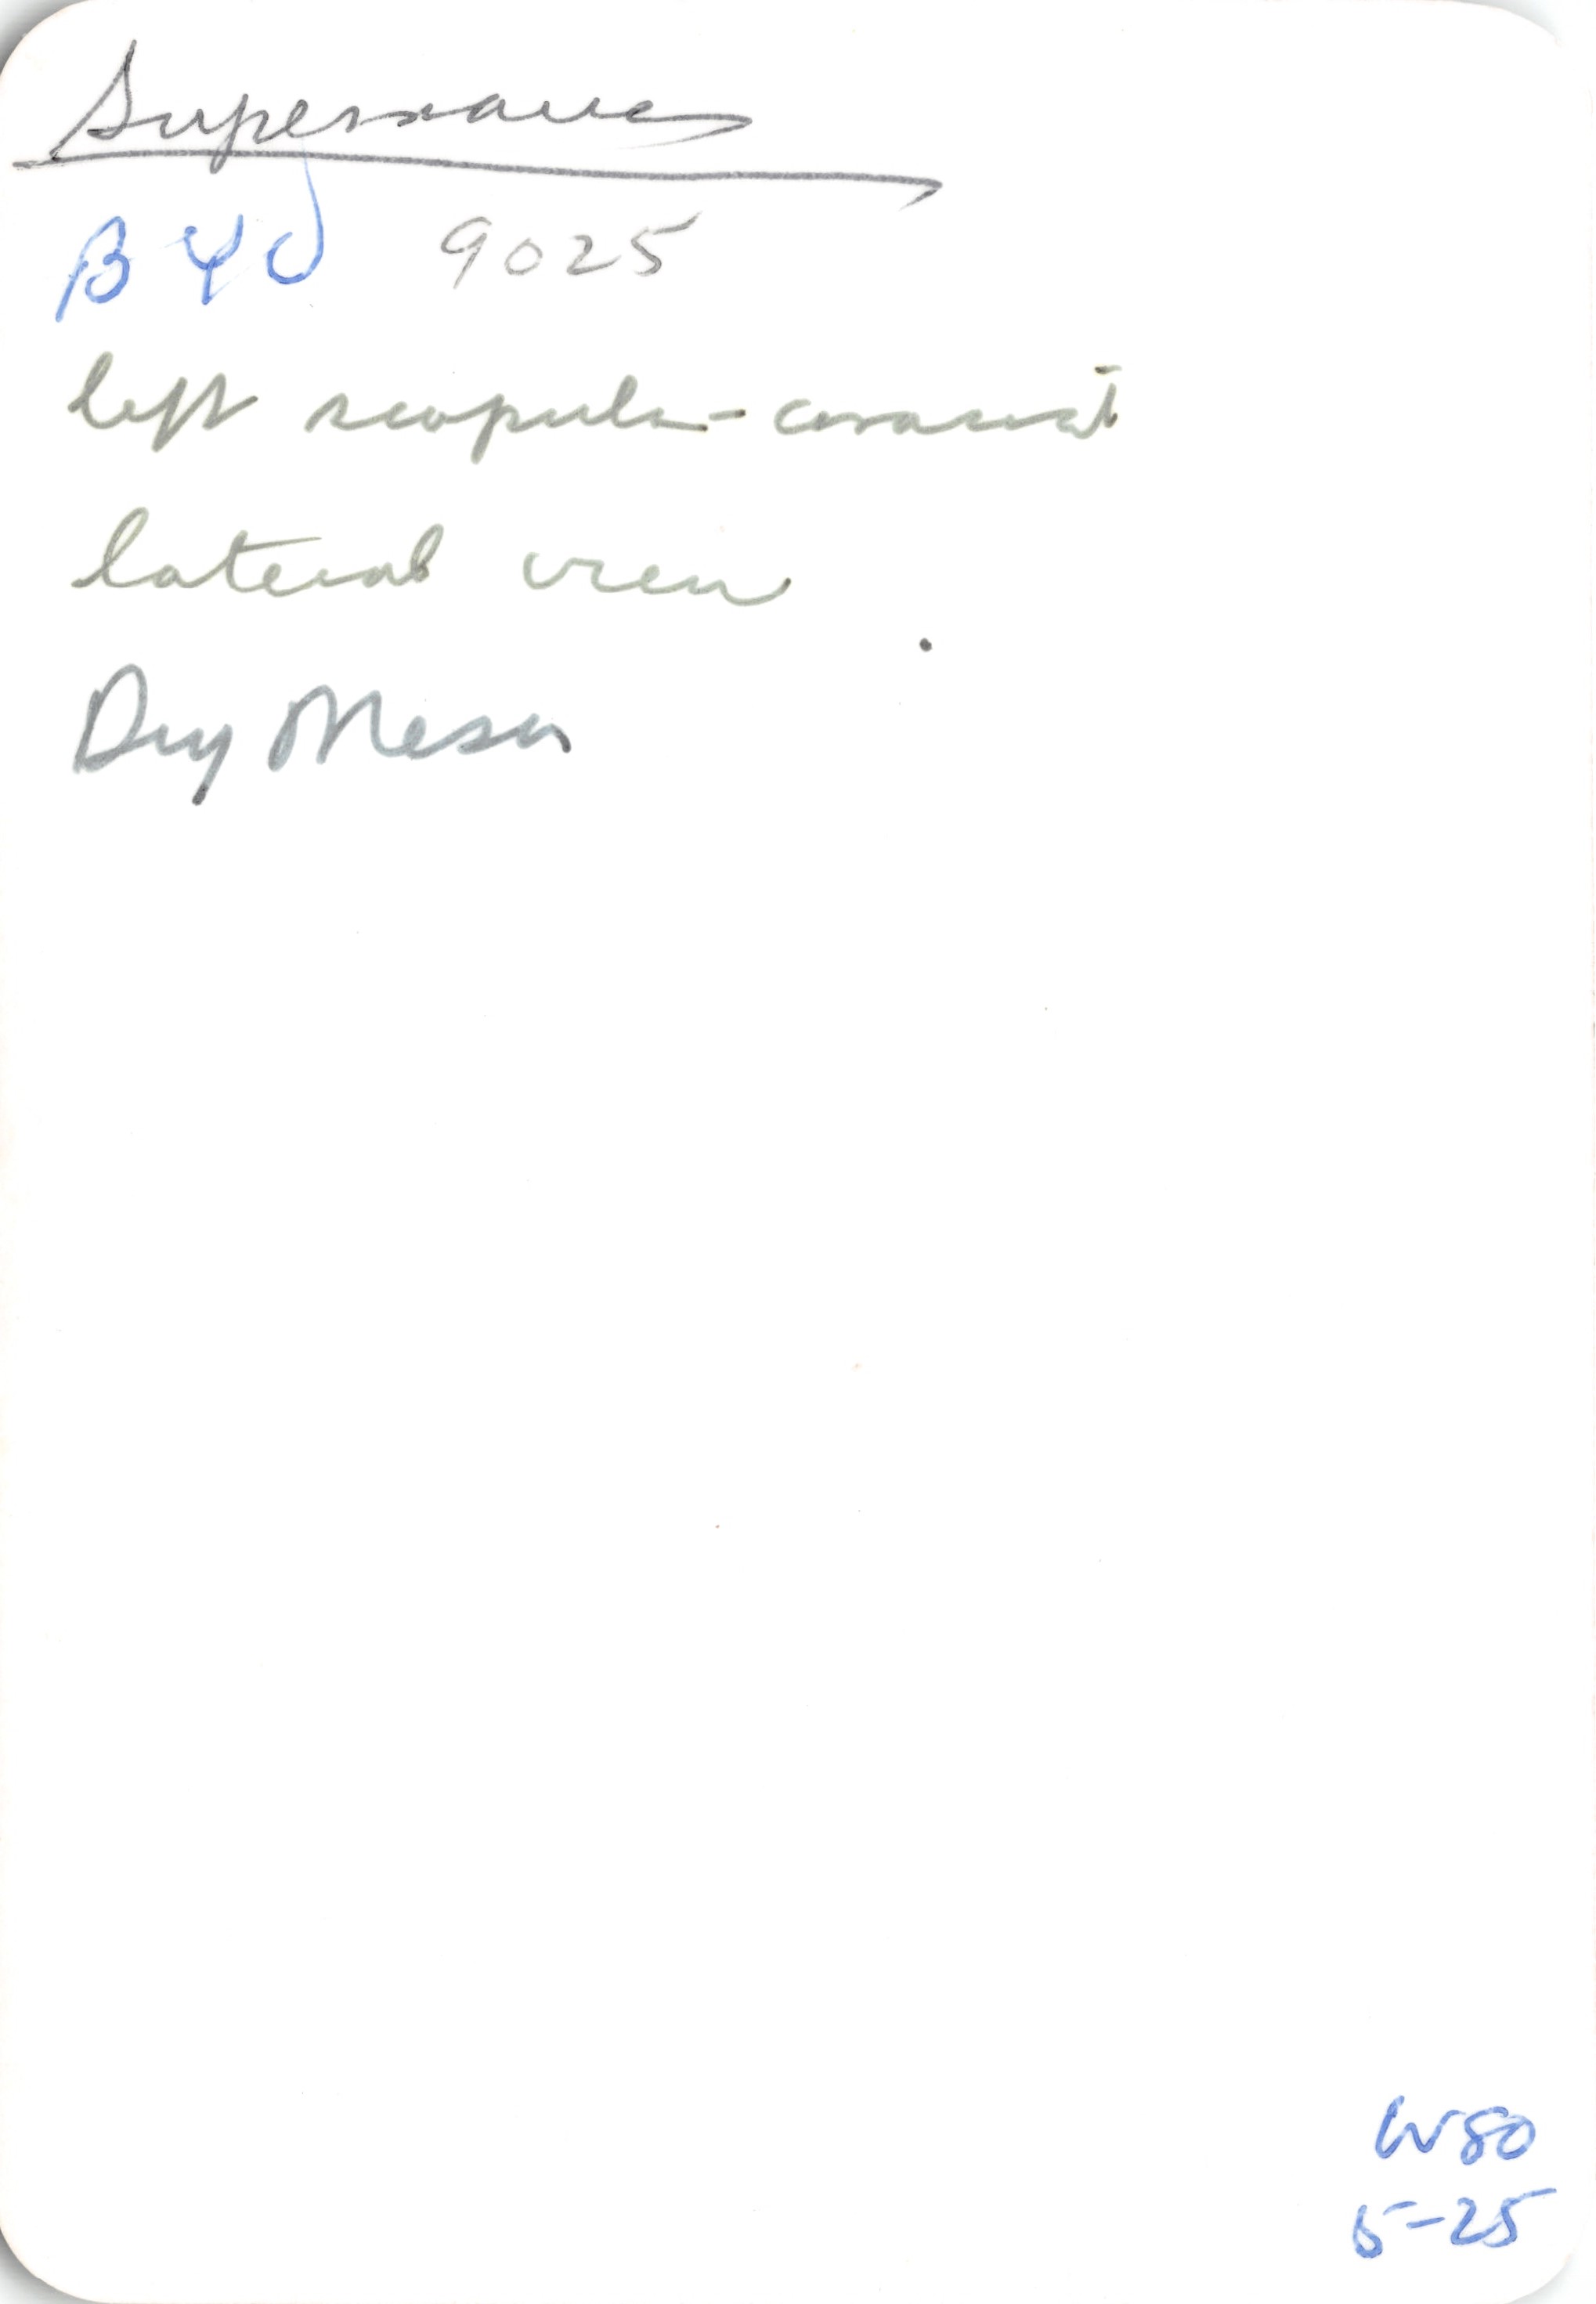 Supersaurus
BYU 9025
left scapula-coracoid
lateral view
Dry Mesa
W80
5-25